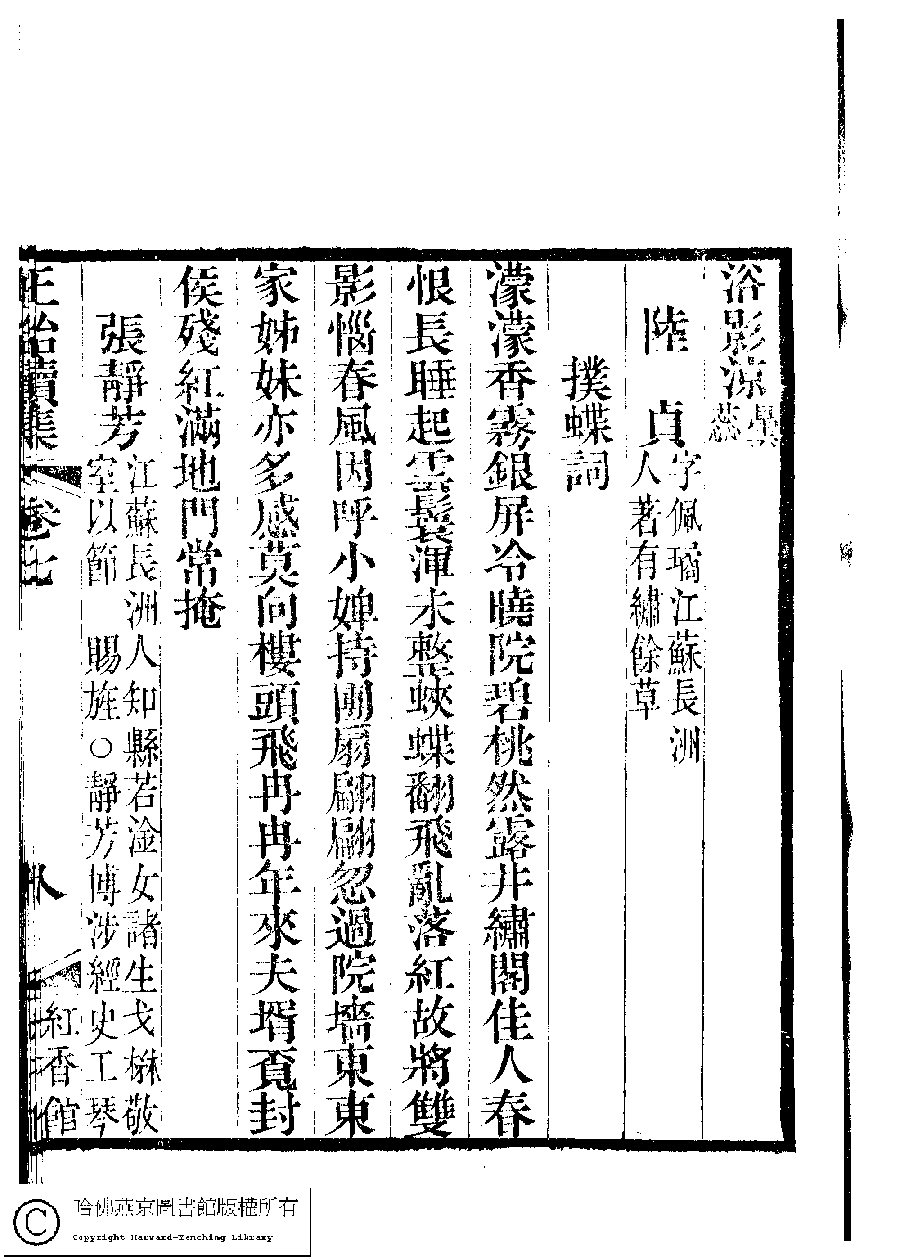 浴影涼蟲蕊
陸貞字佩璚江蘇長洲人著有繡餘草
撲蝶詞
濛濛香霧銀屏冷曉院碧桃然露井繡閣佳人春
恨長睡起雲鬟渾未整蛺蝶翻飛亂落紅故將雙
影惱春風因呼小婢持團扇翩翩忽過院墻東東
家姊妹亦多感莫向樓頭飛冉冉年來夫壻覓封
侯殘紅滿地門常掩
張靜芳江蘇長洲人知縣若淦女諸生戈楙敬室以節 賜旌○靜芳博涉經史工琴
正始續集 卷七 八 紅香館
哈佛燕京圖書館版權所有
Copyright Harvard-Yenching Library